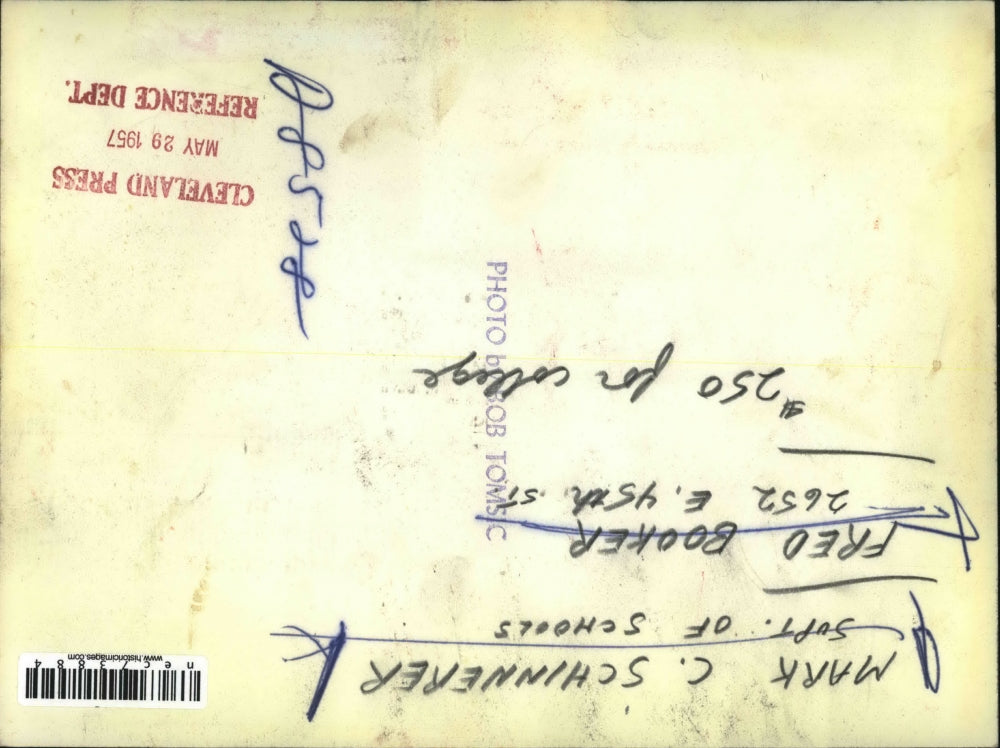 MARK C. SCHINNERER
SUPT. OF SCHOOLS
FRED BOOKER
2652 E. 45th St
$250 for college
PHOTO by BOB TOMSIC
CLEVELAND PRESS
MAY 29 1957
REFERENCE DEPT.
www.historicimages.com